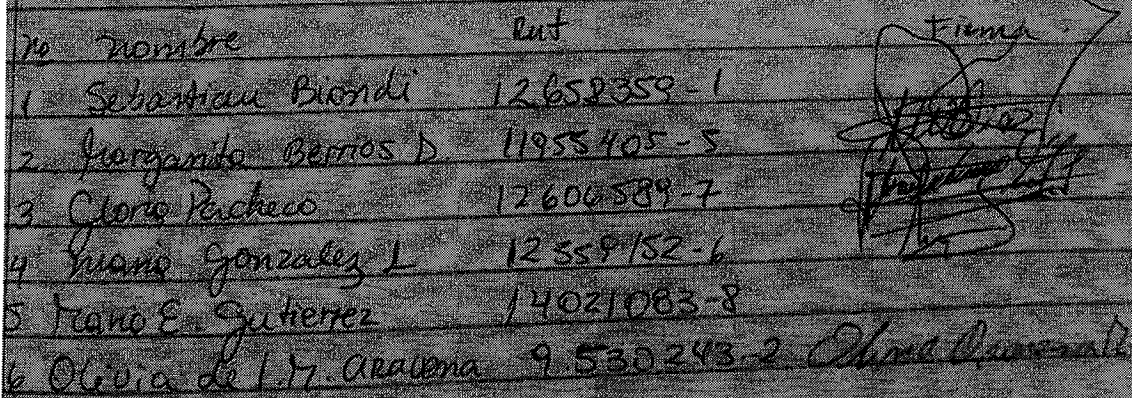 no nombre Rut Firma
1 Sebastian Biondi 12658359-1
2 Margarita Berrios D. 11955405-5
3 Gloria Pacheco 12606589-7
4 Maria Gonzalez L 12559152-6
5 Mario E. Gutierrez 14021083-8
6 Olivia de L.M. Aracena 9.530243-2 Olivia Aracena